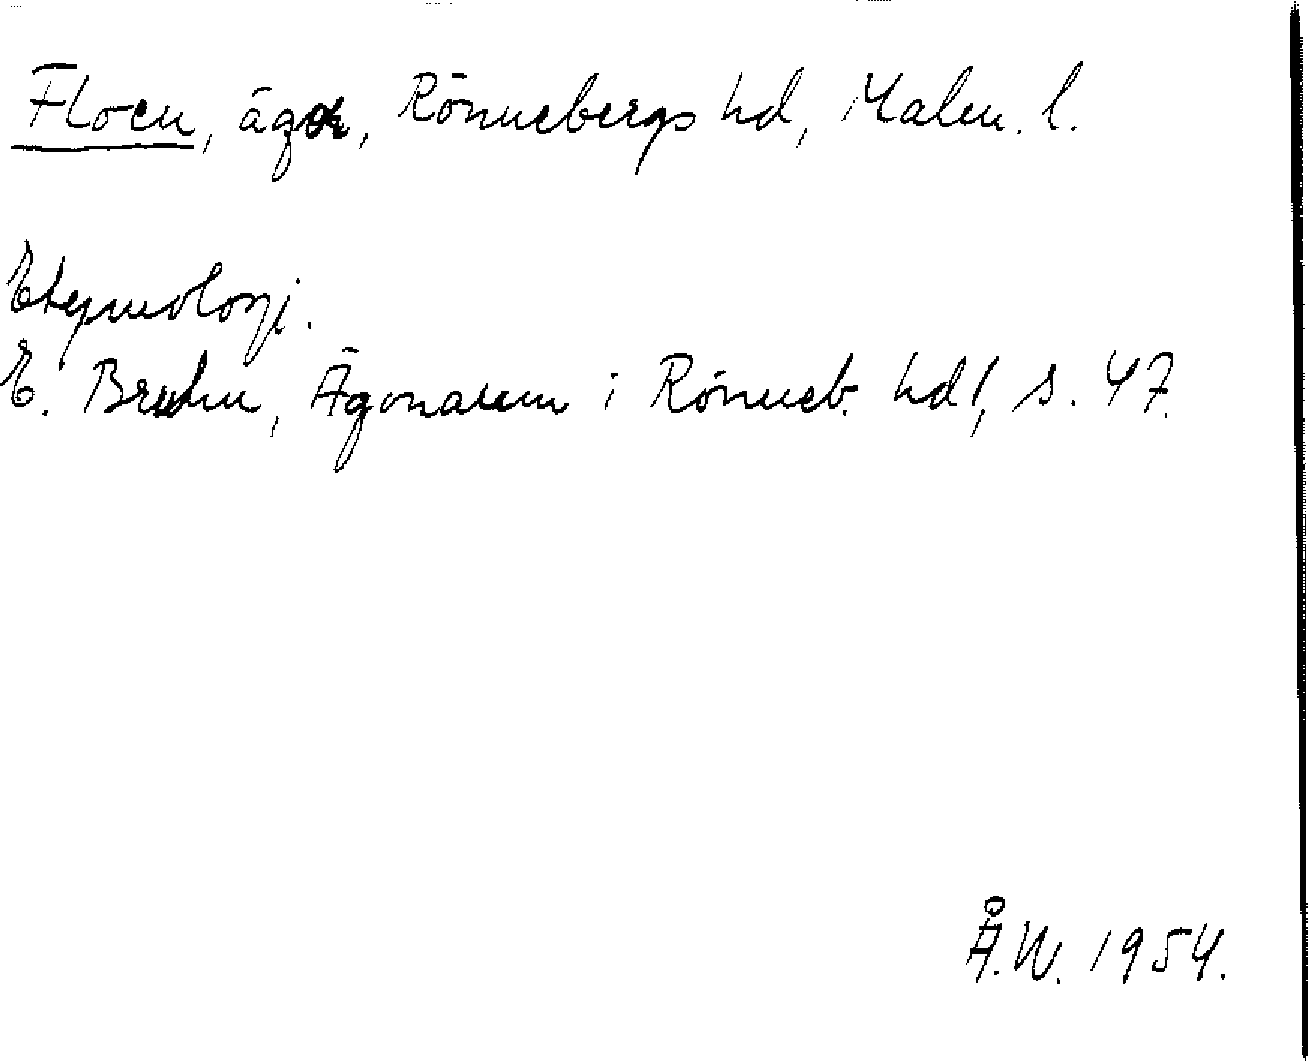 Floen, ägor, Rönnebergs hd, Malm. l.
Etymologi.
E. Bruhn, Ägonamn i Rönneb. hd!, s. 47.
Å.W. 1954.